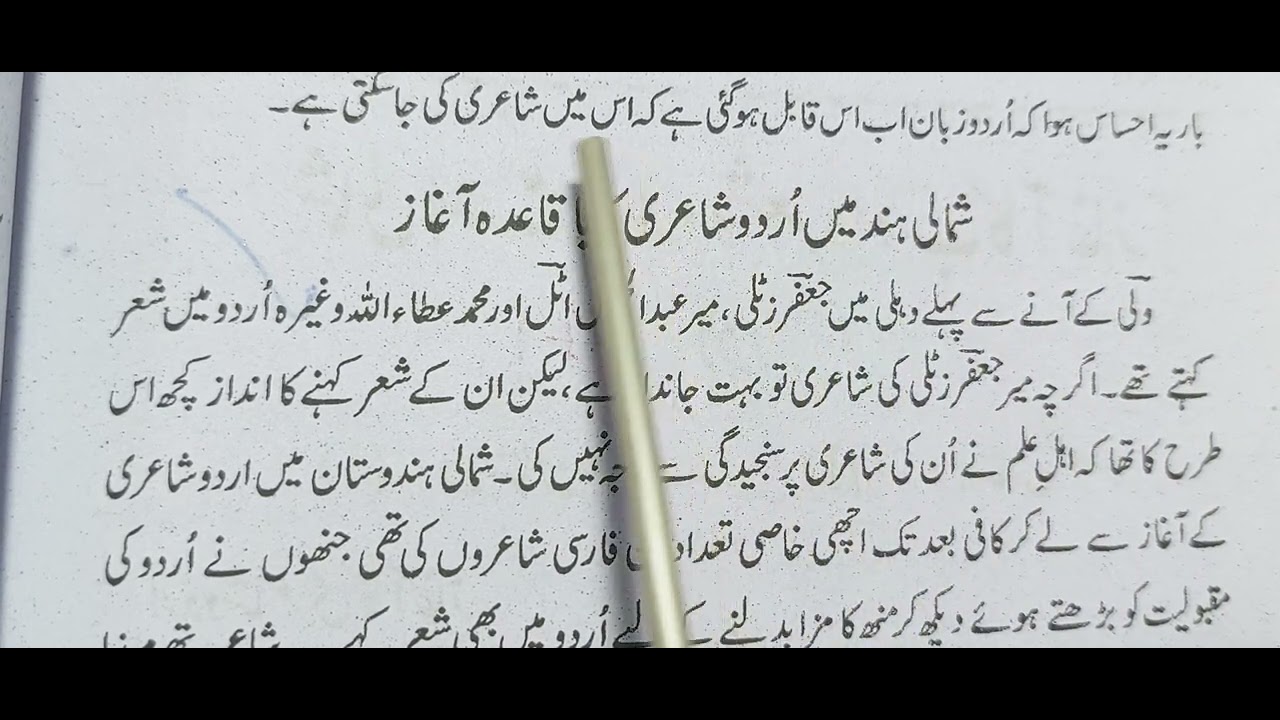 بار یہ احساس ہوا کہ اُردو زبان اب اس قابل ہوگئی ہے کہ اس میں شاعری کی جاسکتی ہے۔
شمالی ہند میں اُردو شاعری قاعدہ آغاز
ولیؔ کے آنے سے پہلے دہلی میں جعفرؔ زٹلی، میر اٹلؔ اور محمد عطاء اللہ وغیرہ اُردو میں شعر
کہتے تھے۔ اگرچہ میر جعفرؔ زٹلی کی شاعری تو بہت ہے، لیکن ان کے شعر کہنے کا انداز کچھ اس
طرح کا تھا کہ اہلِ علم نے اُن کی شاعری پر سنجیدگی سے نہیں کی۔ شمالی ہندوستان میں اردو شاعری
کے آغاز سے لے کر کافی بعد تک اچھی خاصی تعداد فارسی شاعروں کی تھی جنھوں نے اُردو کی
مقبولیت کو بڑھتے ہوئے دیکھ کر منھ کا مزا بدلنے کے لیے اُردو میں بھی شعر